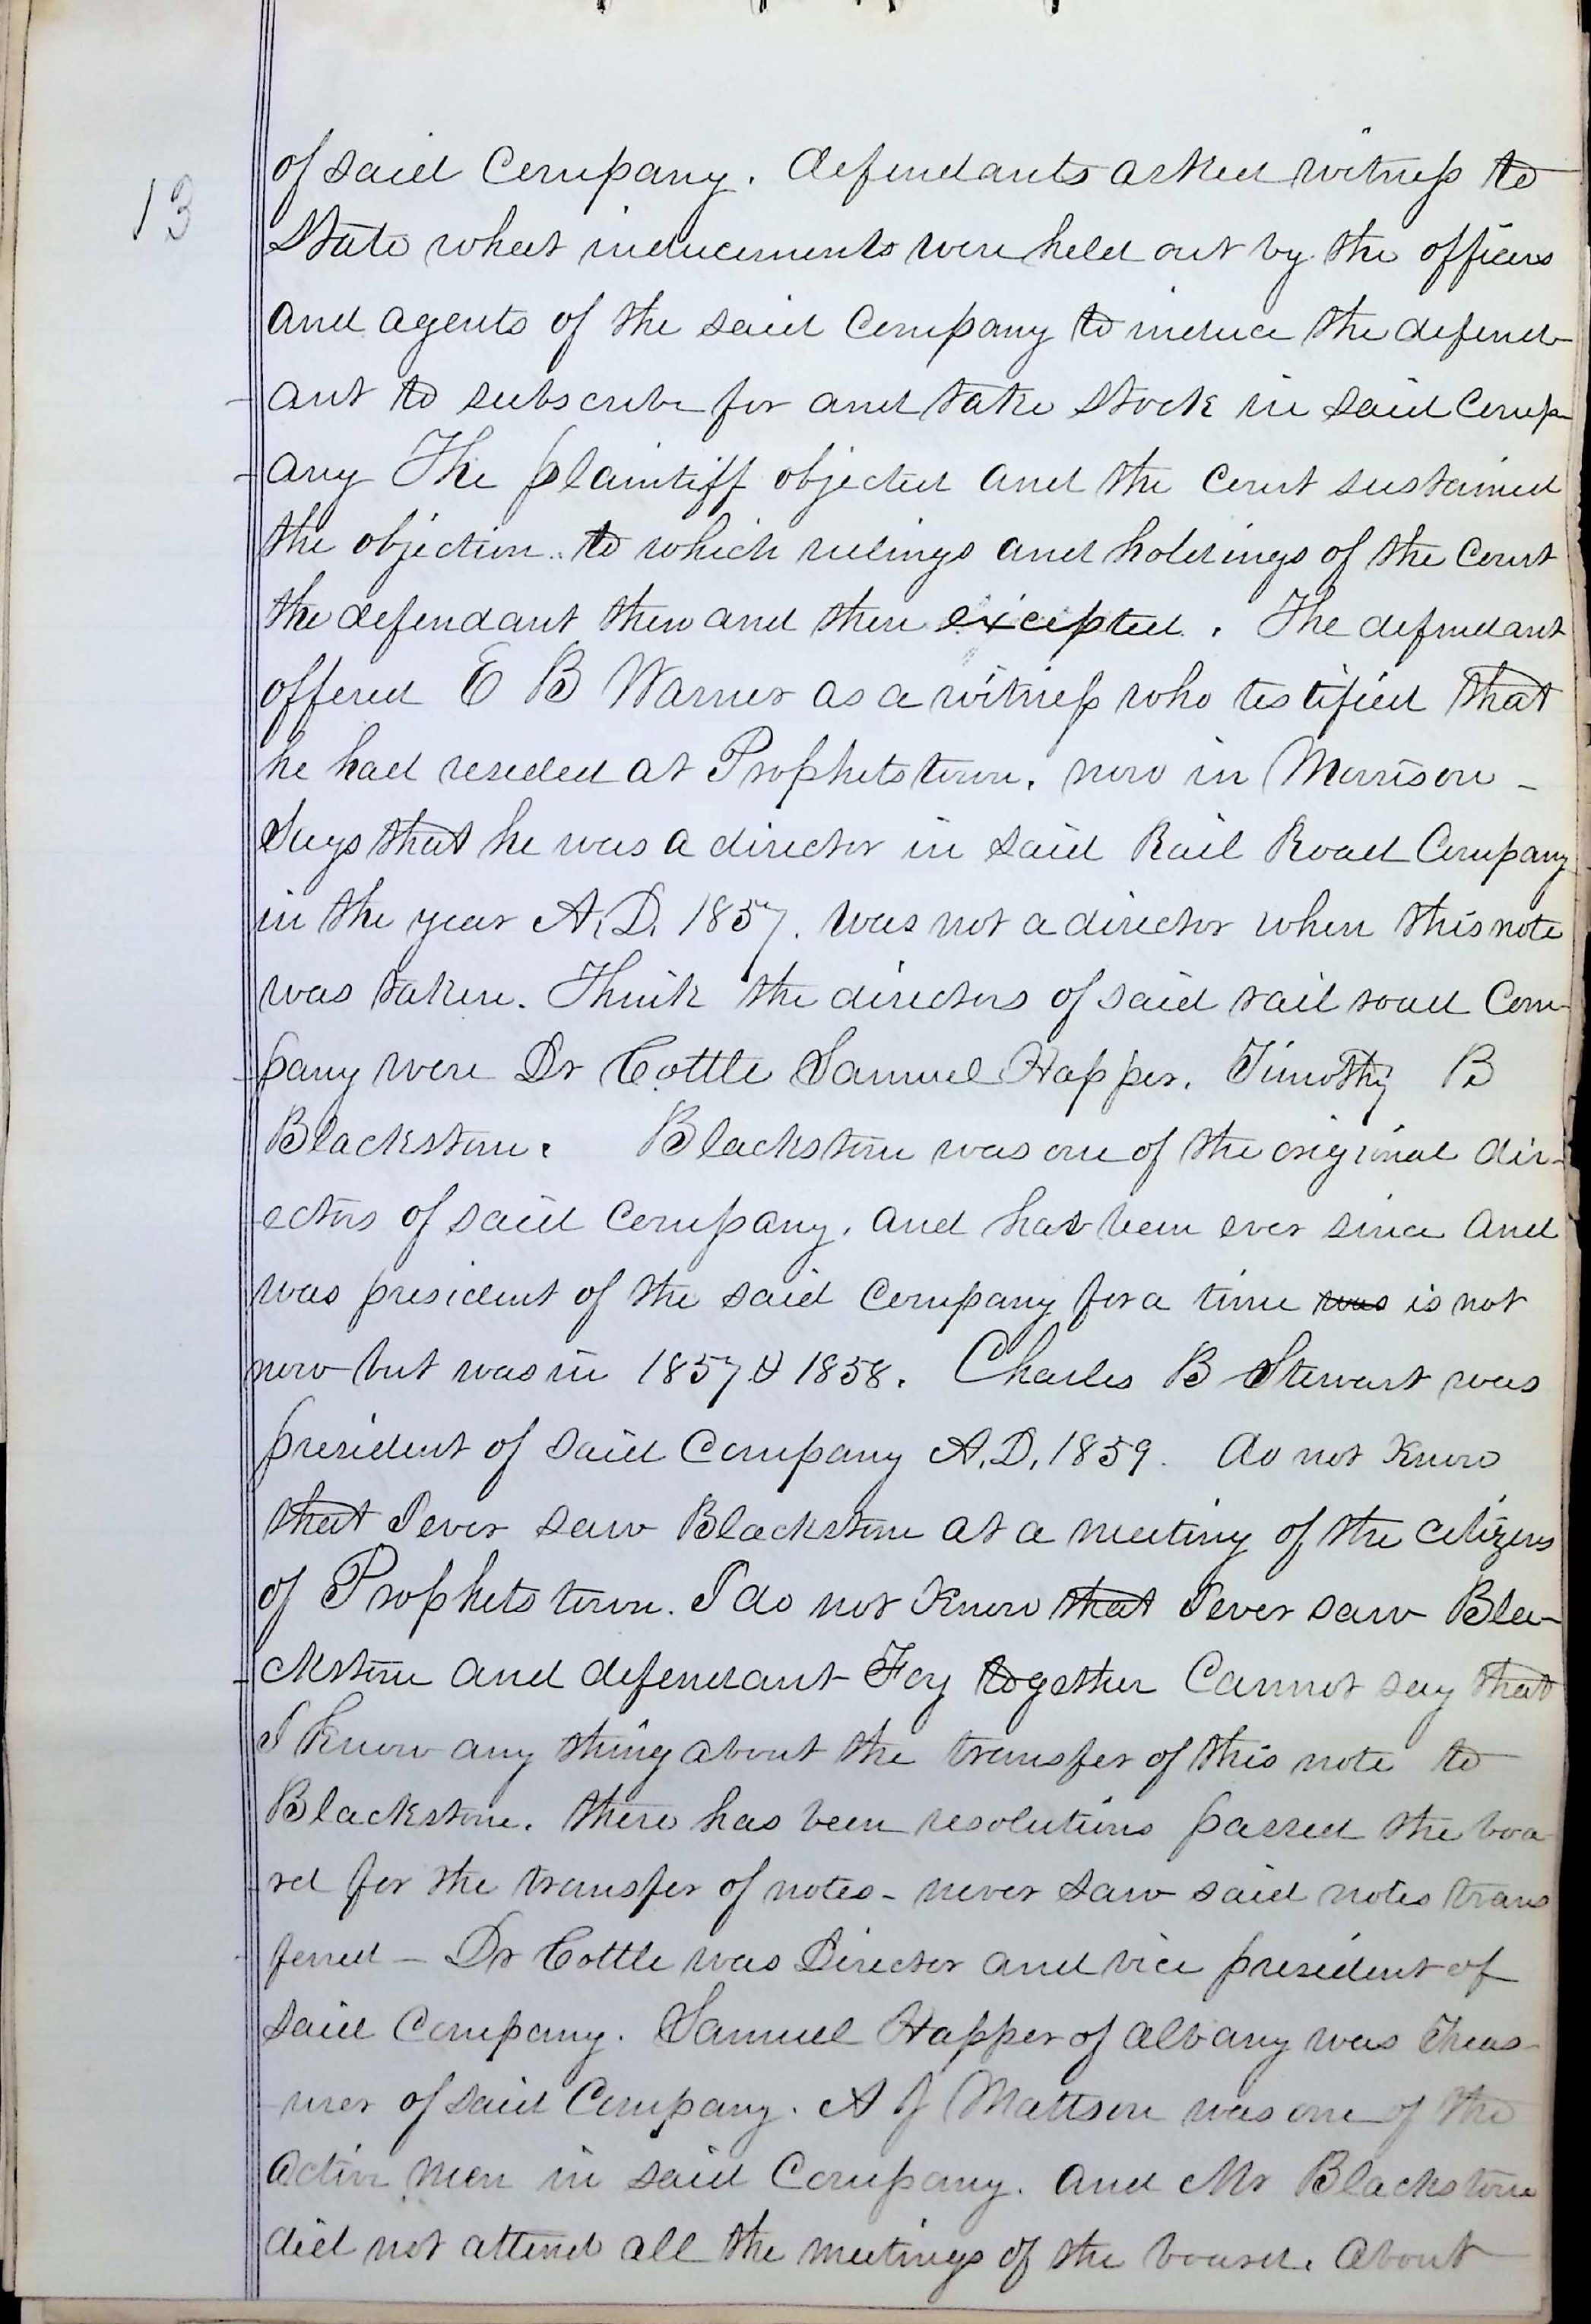 13
of said Company. defendants asked witness to
State what inducements were held out by the officers
and agents of the said Company to induce the defend-
ant to subscribe for and take Stock in said Comp-
any The plaintiff objected and the Court sustained
the objection. to which rulings and holdings of the Court
the defendant then and there excepted. The defendant
offered E B Warner as a witness who testified that
he had resided at Prophetstown, now in Morrison -
Says that he was a director in said Rail Road Company
in the year A.D. 1857. was not a director when this note
was taken. Think the directors of said rail road Com-
pany were Dr Cottle Samuel Happer. Timothy B
Blackstone. Blackstone was one of the original dir-
ectors of said Company. and has been ever since and
was president of the said Company for a time was is not
now but was in 1857 & 1858. Charles B Stewart was
president of said Company A.D. 1859. do not know
that I ever saw Blackstone at a meeting of the citizens
of Prophetstown. I do not know that I ever saw Bla-
ckstone and defendant Foy together Cannot say that
I know any thing about the transfer of this note to
Blackstone. there has been resolutions passed the boa
rd for the transfer of notes - never saw said notes trans
ferred - Dr Cottle was Director and vice president of
said Company. Samuel Happer of Albany was Treas-
urer of said Company. A J Mattson was one of the
active men in said Company. and Mr Blackstone
did not attend all the meetings of the board. About